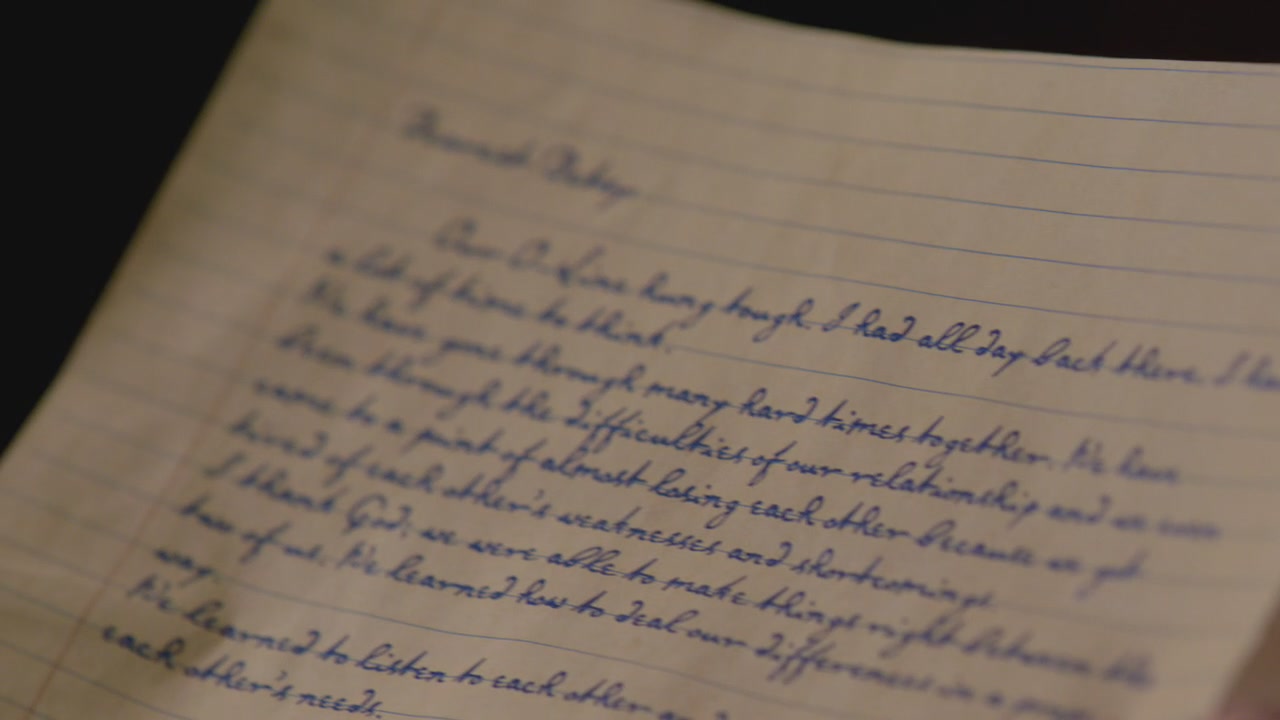 Dear O-Line hung tough. I had all day back there. I
a lot of time to think.
We have gone through many hard times together. We have
been through the difficulties of our relationship and we even
came to a point of almost losing each other because we got
tired of each other's weaknesses and shortcomings.
I thank God; we were able to make things right between the
two of us. We learned how to deal our differences in a
way.
We learned to listen to each other
each other's needs.